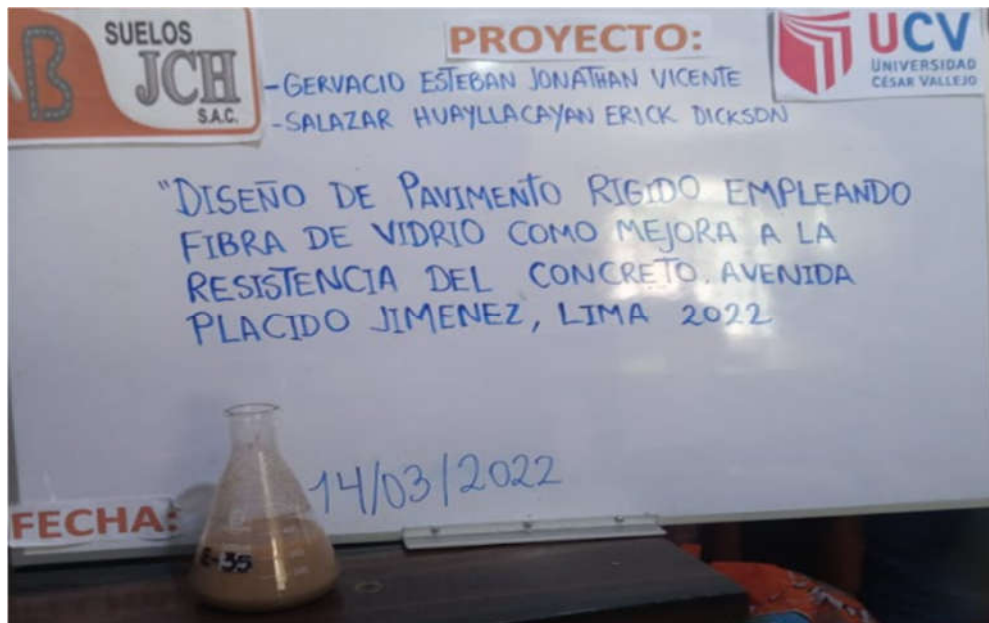 B
SUELOS
JCH
S.A.C.
PROYECTO:
UCV
UNIVERSIDAD
CÉSAR VALLEJO
-GERVACIO ESTEBAN JONATHAN VICENTE
-SALAZAR HUAYLLACAYAN ERICK DICKSON
"DISEÑO DE PAVIMENTO RIGIDO EMPLEANDO
FIBRA DE VIDRIO COMO MEJORA A LA
RESISTENCIA DEL CONCRETO. AVENIDA
PLACIDO JIMENEZ, LIMA 2022
14/03/2022
FECHA:
E-35